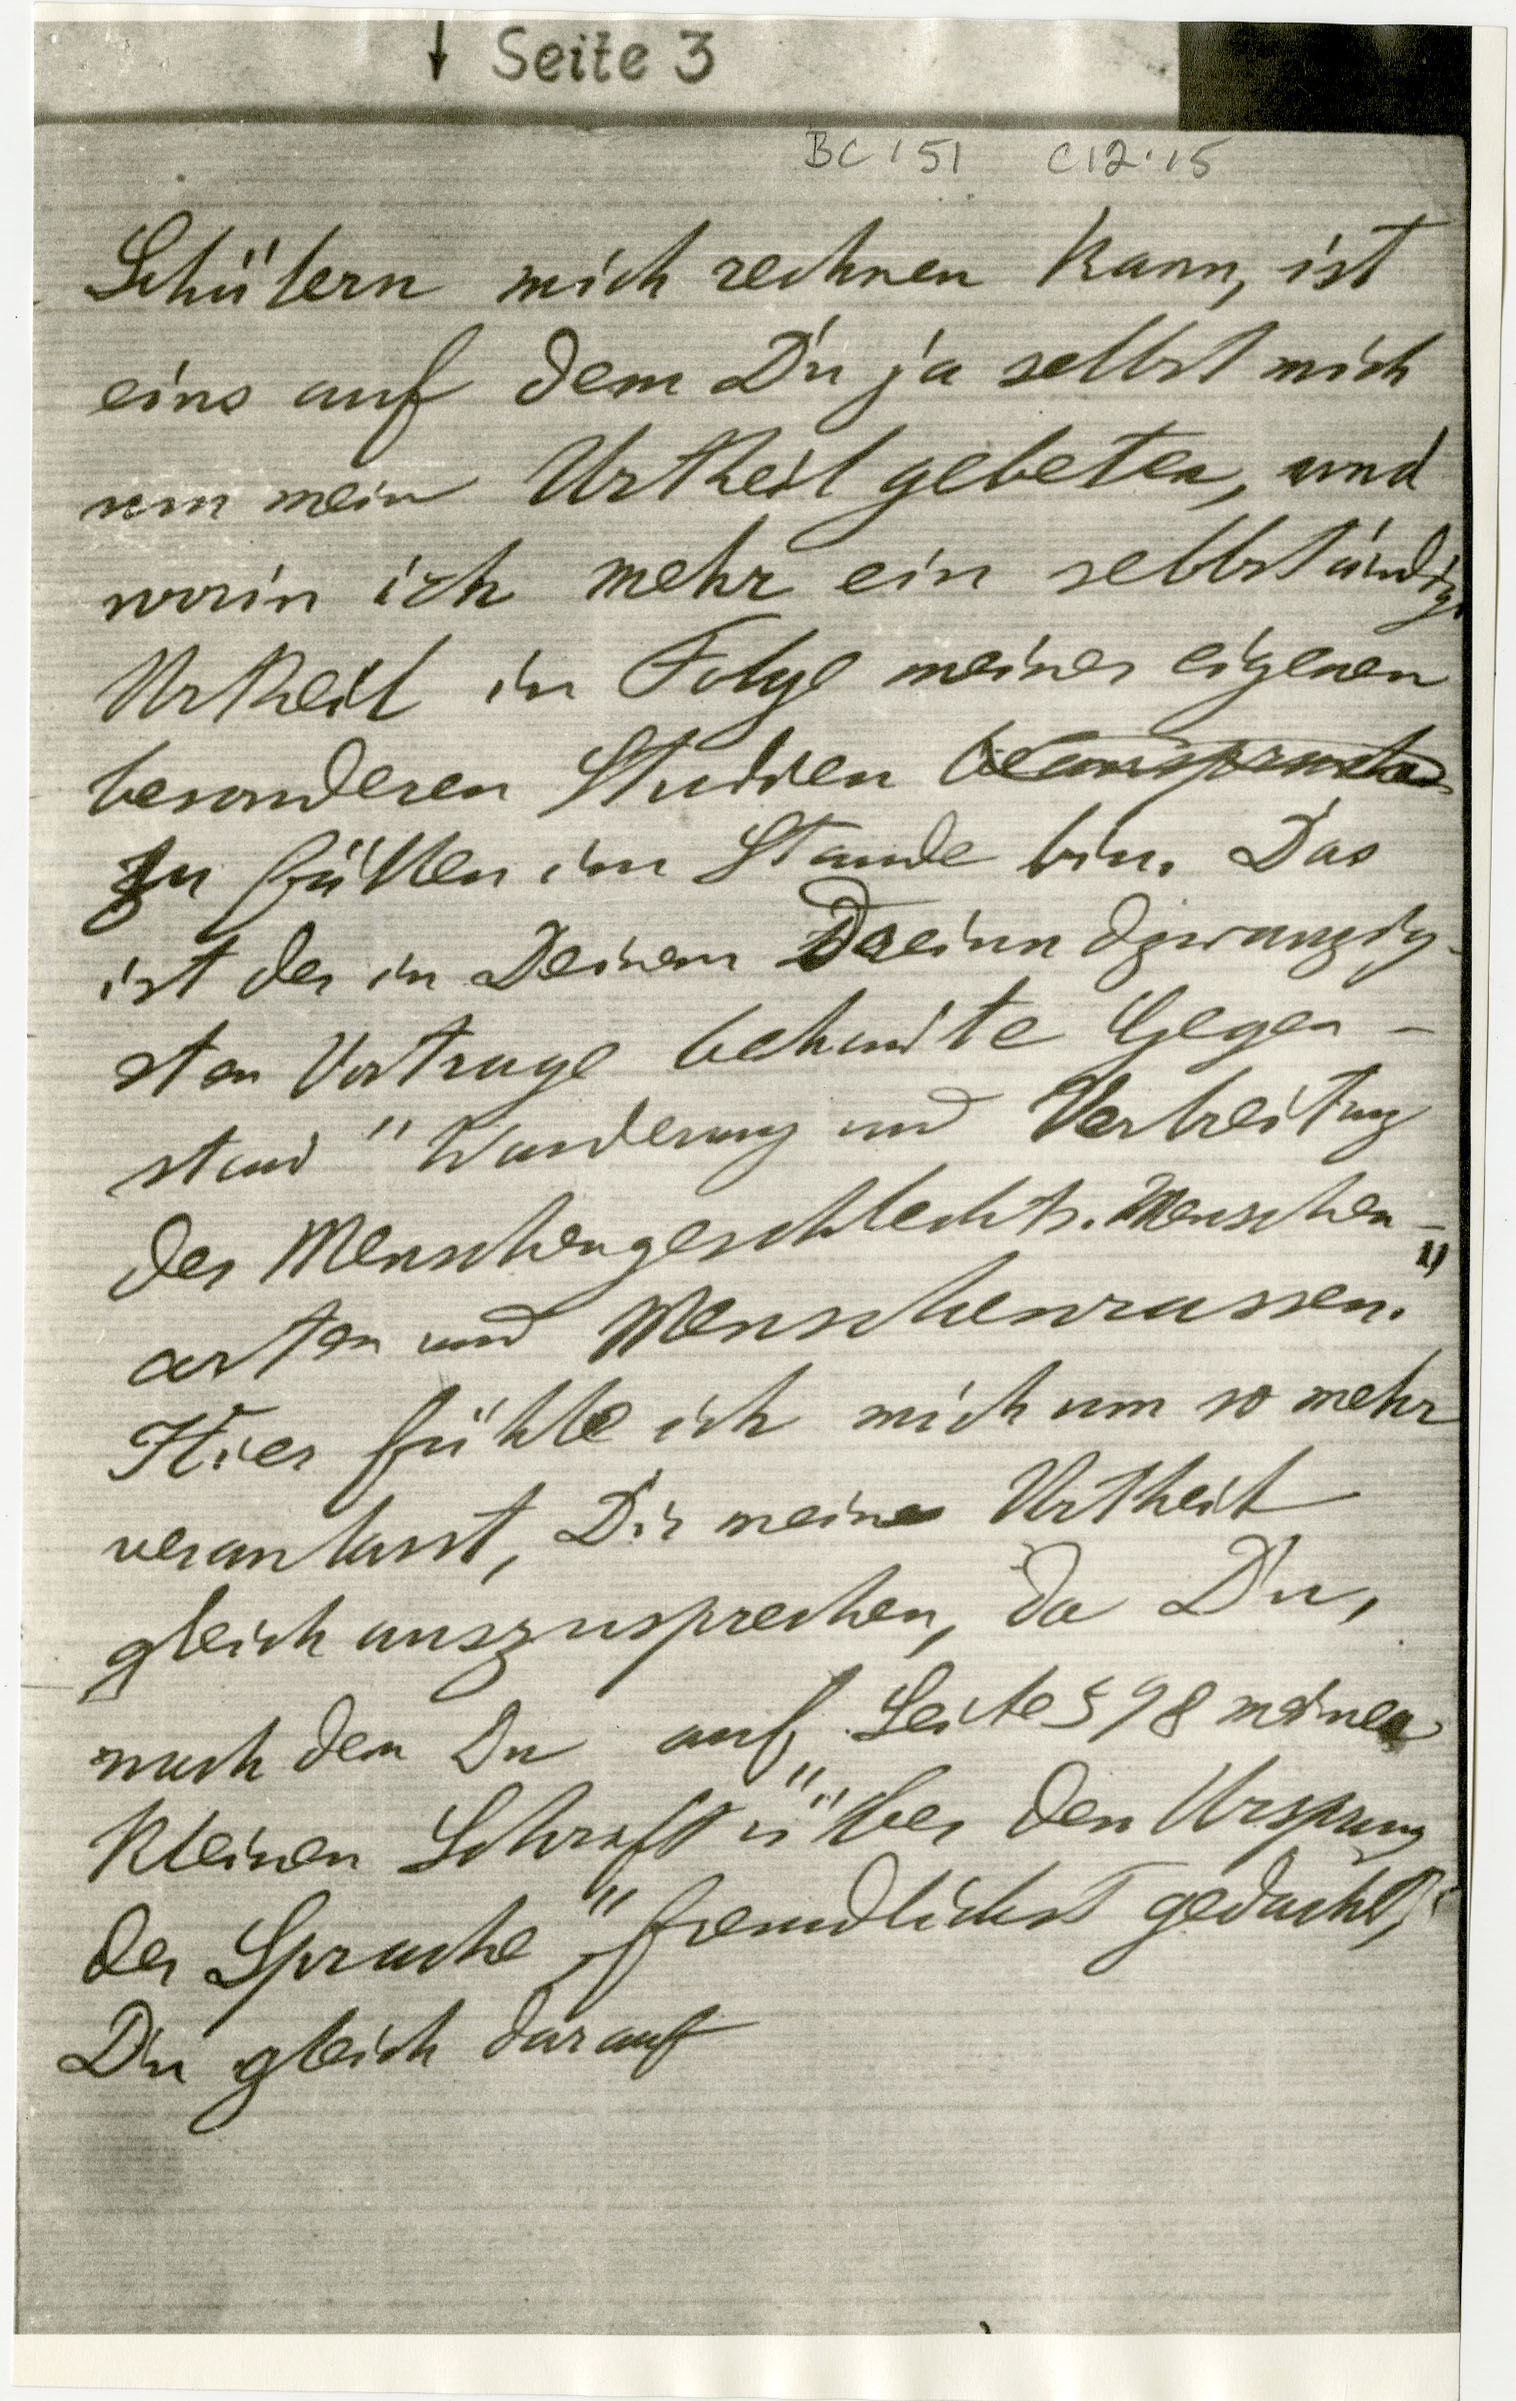 ↓ Seite 3
BC 151 C12.15
Schülern mich rechnen kann, ist
eins auf dem Du ja selbst mich
um mein Urtheil gebeten, und
worin ich mehr ein selbständig.
Urtheil in Folge meiner eigenen
besonderen Studien beansprucht
zu fällen im Stande bin. Das
ist der in Deinem Dreiundzwanzig-
sten Vortrage behandte Gegen-
stand "Wanderung und Verbreitung
des Menschengeschlechts. Menschen-
arten und Menschenrassen."
Hier fühle ich mich um so mehr
veranlasst, Dir meine Urtheil
gleich auszusprechen, da Du,
nach dem Du auf Seite 598 meiner
kleinen Schrift "über den Ursprung
der Sprache" freundlichst gedacht,
Du gleich darauf